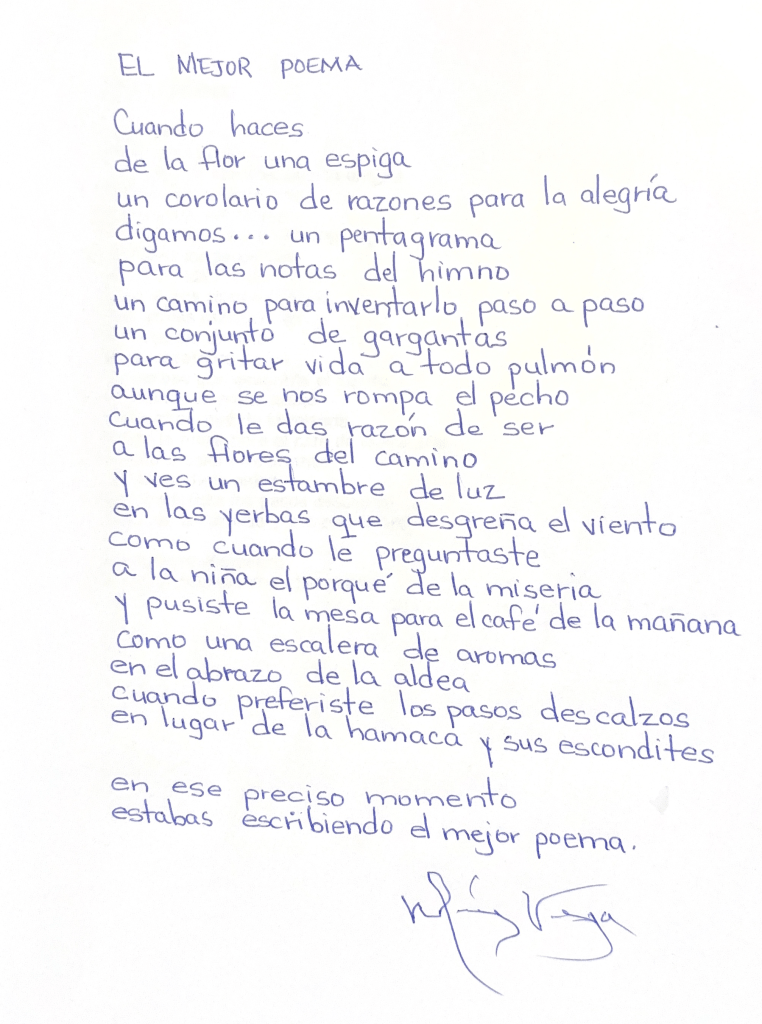 EL MEJOR POEMA
Cuando haces
de la flor una espiga
un corolario de razones para la alegría
digamos... un pentagrama
para las notas del himno
un camino para inventarlo paso a paso
un conjunto de gargantas
para gritar vida a todo pulmón
aunque se nos rompa el pecho
cuando le das razón de ser
a las flores del camino
y ves un estambre de luz
en las yerbas que desgreña el viento
como cuando le preguntaste
a la niña el porqué de la miseria
y pusiste la mesa para el café de la mañana
como una escalera de aromas
en el abrazo de la aldea
cuando preferiste los pasos descalzos
en lugar de la hamaca y sus escondites
en ese preciso momento
estabas escribiendo el mejor poema.
Vega